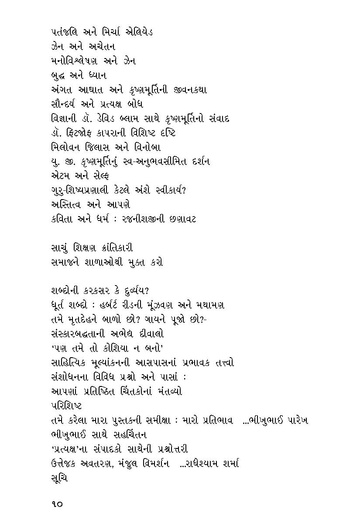 પતંજલિ અને મિર્ચા એલિયેડ
ઝેન અને અચેતન
મનોવિશ્લેષણ અને ઝેન
બુદ્ધ અને ધ્યાન
અંગત આઘાત અને કૃષ્ણમૂર્તિની જીવનકથા
સૌન્દર્ય અને પ્રત્યક્ષ બોધ
વિજ્ઞાની ડૉ. ડેવિડ બ્લામ સાથે કૃષ્ણમૂર્તિનો સંવાદ
ડૉ. ફ્રિટજોફ કાપરાની વિશિષ્ટ દૃષ્ટિ
મિલોવન જિલાસ અને વિનોબા
યુ. જી. કૃષ્ણમૂર્તિનું સ્વ-અનુભવસીમિત દર્શન
એટમ અને સેલ્ફ
ગુરુ-શિષ્યપ્રણાલી કેટલે અંશે સ્વીકાર્ય?
અસ્તિત્વ અને આપણે
કવિતા અને ધર્મ : રજનીશજીની છણાવટ
સાચું શિક્ષણ ક્રાંતિકારી
સમાજને શાળાઓથી મુક્ત કરો
શબ્દોની કરકસર કે દુર્વ્યય?
ધૂર્ત શબ્દો : હર્બર્ટ રીડની મૂંઝવણ અને મથામણ
તમે મૃતદેહને બાળો છો? ગાયને પૂજો છો?-
સંસ્કારબદ્ધતાની અભેદ્ય દીવાલો
‘પણ તમે તો કોશિયા ન બનો’
સાહિત્યિક મૂલ્યાંકનની આસપાસનાં પ્રભાવક તત્ત્વો
સંશોધનના વિવિધ પ્રશ્નો અને પાસાં :
આપણાં પ્રતિષ્ઠિત ચિંતકોનાં મંતવ્યો
પરિશિષ્ટ
તમે કરેલા મારા પુસ્તકની સમીક્ષા : મારો પ્રતિભાવ ...ભીખુભાઈ પારેખ
ભીખુભાઈ સાથે સહચિંતન
‘પ્રત્યક્ષ’ના સંપાદકો સાથેની પ્રશ્નોત્તરી
ઉત્તેજક અવતરણ, મંજુલ વિમર્શન ...રાધેશ્યામ શર્મા
સૂચિ
૧૦